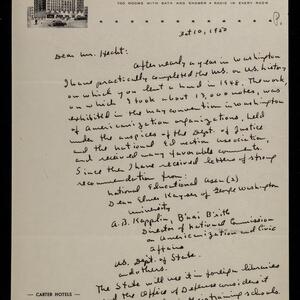 700 ROOMS WITH BATH AND SHOWER • RADIO IN EVERY ROOM
Oct 10, 1950
Dear Mr. Hecht:
After nearly a year in Washington
I have practically completed the ms. on U.S. history,
on which you lent a hand in 1948. The work,
on which I took about 13,000 notes, was
exhibited in the May convention in Washington
of Americanization organizations, held
under the auspices of the Dept. of Justice
and the National Education Association
and received many favorable comments.
Since then I have received letters of strong
recommendation from:
National Educational Assn (2)
Dean Elmer Kayser of George Washington
University
A. B. Kapplin, B'nai B'rith
Director of National Commission
on Americanization and Civic
Affairs
U.S. Dept. of State.
and others.
The State will use it in foreign libraries
and the Office of Defense consider it
training schools.
CARTER HOTELS